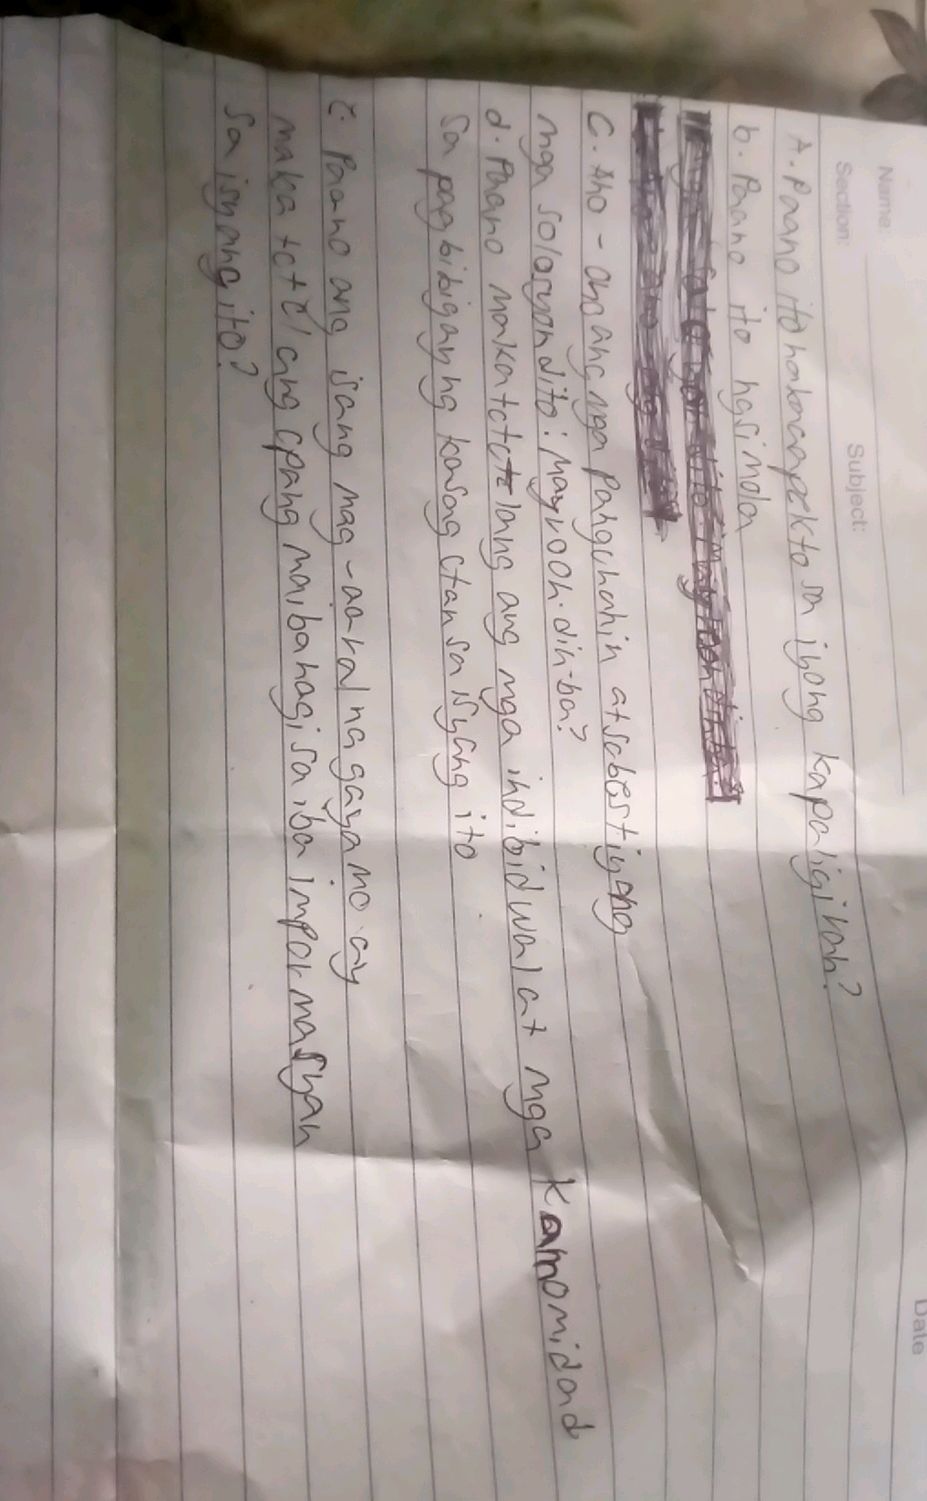 Name:
Date
Section: Subject:
A. Paano ito nakakaapekto sa iyong kapaligiran?
b. Paano ito nagsimola
C. Ano-ano ang mga pangunahin at sabestiyong
mga solosyon dito? Mayroon din ba?
d. Paano makatotolang ang mga indibidwal at mga Kamonidad
sa pagbibigay ng kasagotan sa isyang ito
E. Paano ang isang mag-aaral na gaya mo ay
ang opang maibahagi sa iba impormasyon
sa isyang ito?